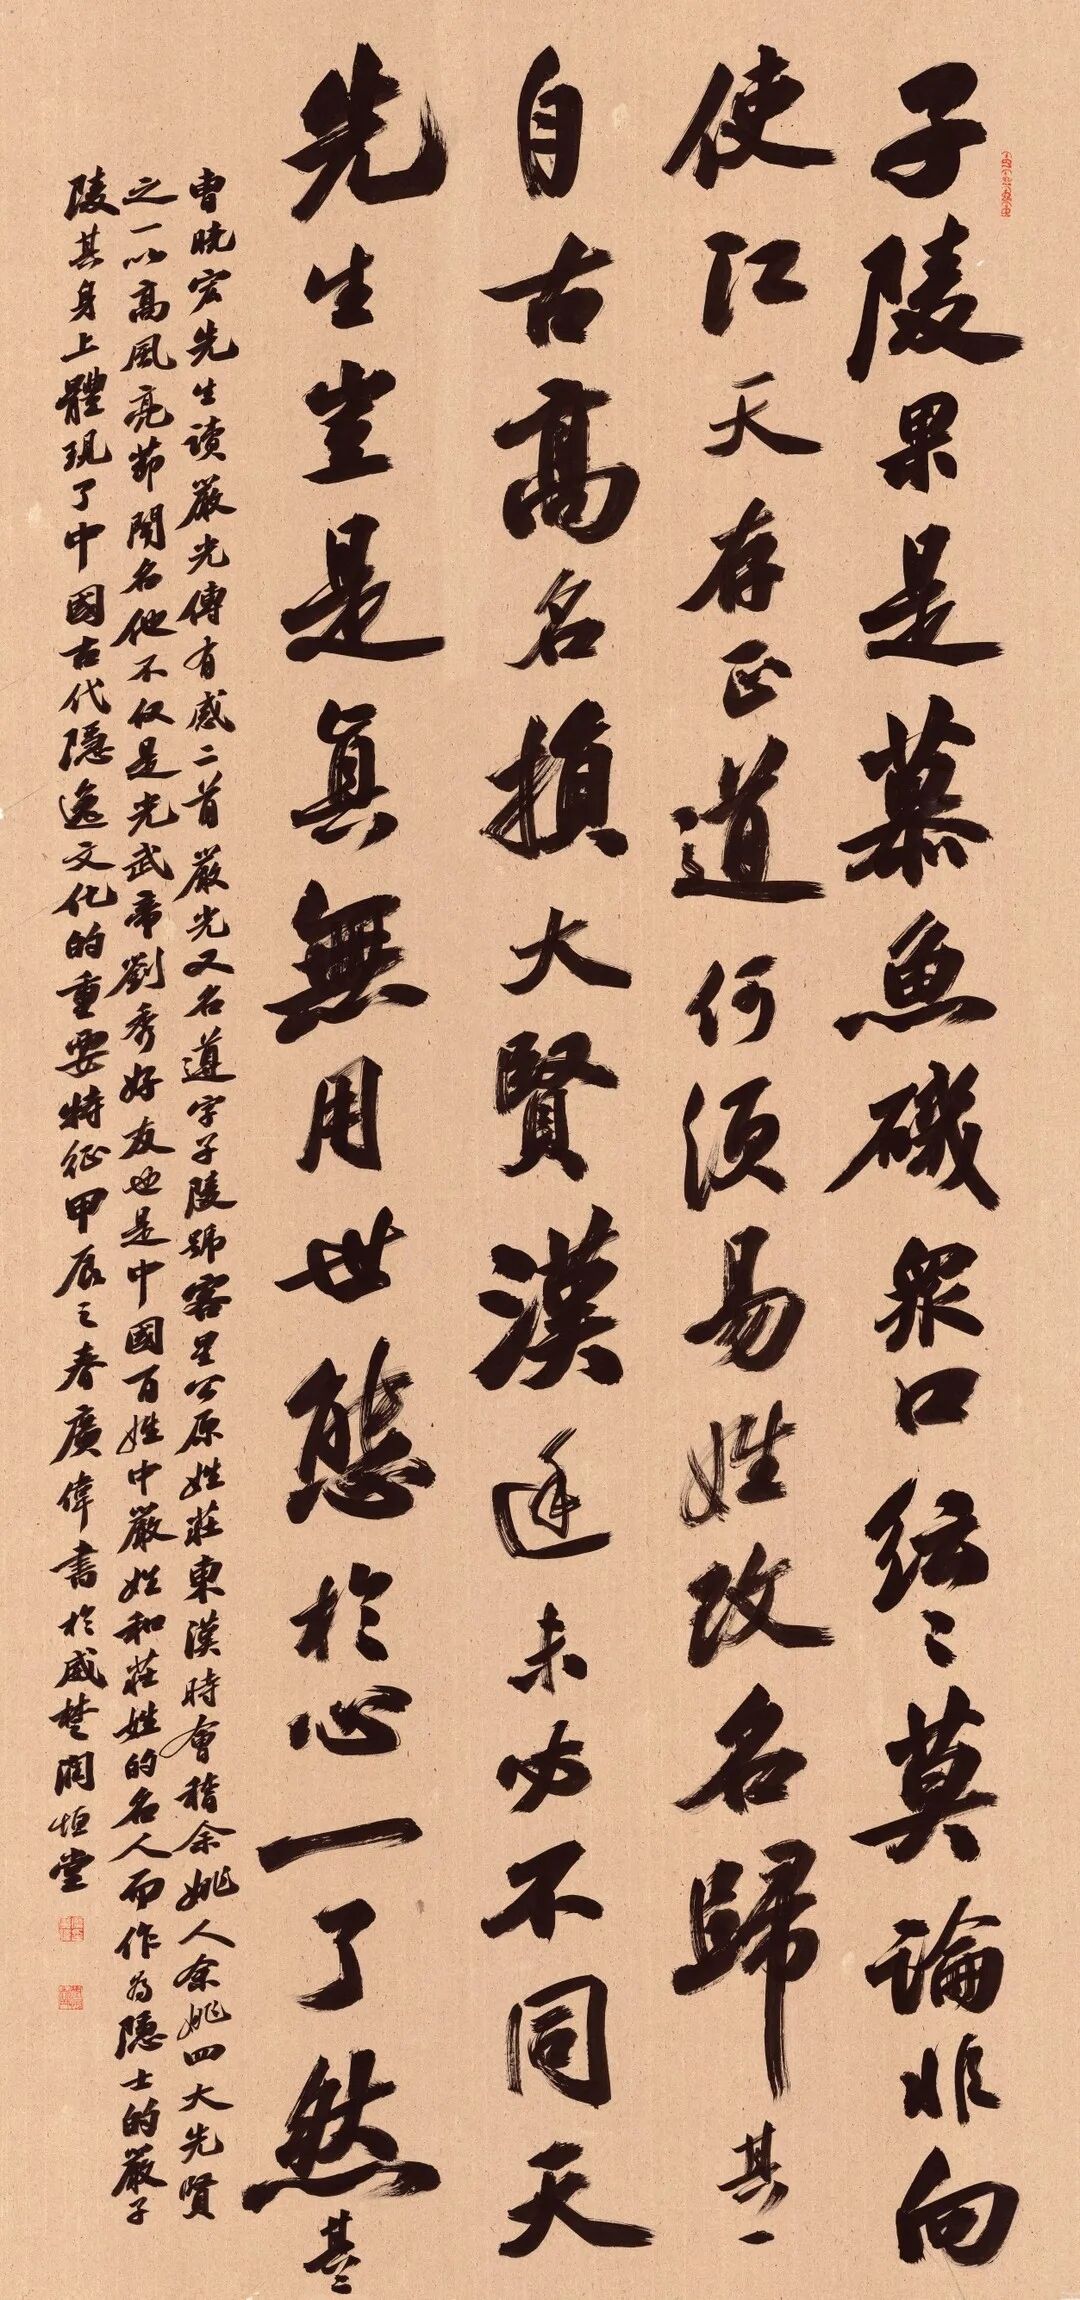 子陵果是慕魚磯眾口紜〻莫論非向
使江天存正道何須易姓改名歸 其一
自古高名損大賢漢廷未必不同天
先生豈是真無用世態於心一了然 其二
曹曉宏先生讀嚴光傳有感二首 嚴光又名遵字子陵號客星公原姓莊東漢時會稽余姚人余姚四大先賢
之一以高風亮節聞名他不仅是光武帝劉秀好友也是中國百姓中嚴姓和莊姓的名人而作為隱士的嚴子
陵其身上體現了中國古代隱逸文化的重要特征甲辰之春廣偉書於威楚潤恒堂